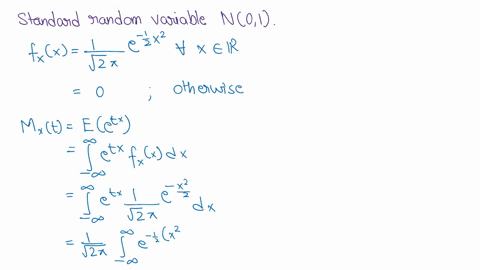 Standard random variable N(0,1).
fₓ(x) = 1/√2π e^{-1/2 x²} ∀ x ∈ ℝ
= 0 ; otherwise
Mₓ(t) = E(e^{tx})
= ∫_{-∞}^{∞} e^{tx} fₓ(x) dx
= ∫_{-∞}^{∞} e^{tx} 1/√2π e^{-x²/2} dx
= 1/√2π ∫_{-∞}^{∞} e^{-1/2(x²